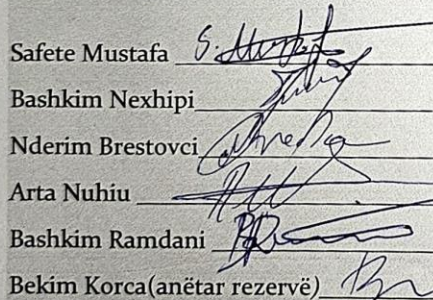 Safete Mustafa S. Mustafa
Bashkim Nexhipi
Nderim Brestovci
Arta Nuhiu
Bashkim Ramdani
Bekim Korca(anëtar rezervë)